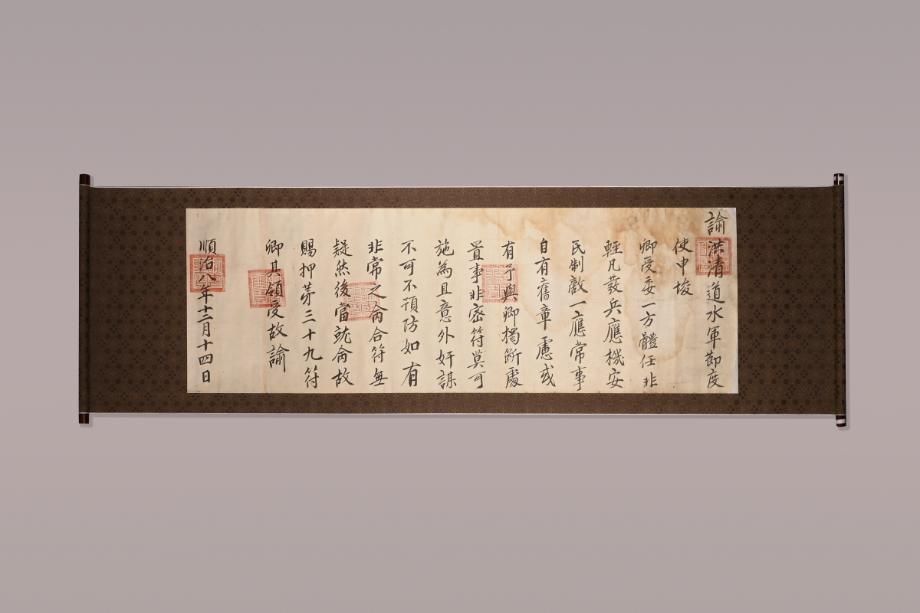 諭洪清道水軍節度
使申埈
卿受委一方體任非
輕凡發兵應機安
民制敵一應常事
自有舊章慮或
有予與卿獨斷處
置事非密符莫可
施為且意外奸謀
不可不預防如有
非常之命合符無
疑然後當就命故
賜押第三十九符
卿其領受故諭
順治八年十二月十四日